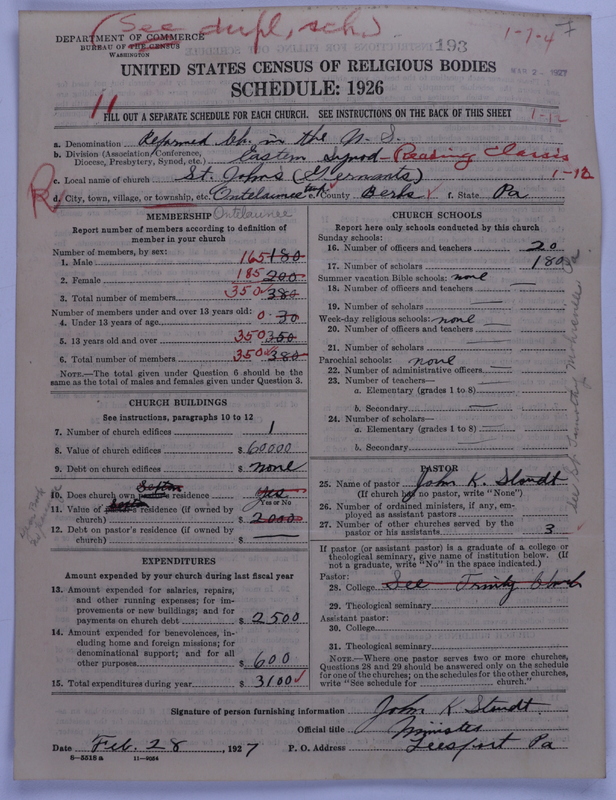 (See dupl. sch.)
1-7-4
DEPARTMENT OF COMMERCE
BUREAU OF THE CENSUS
WASHINGTON
193
MAR 2 - 1927
UNITED STATES CENSUS OF RELIGIOUS BODIES
SCHEDULE: 1926
11
FILL OUT A SEPARATE SCHEDULE FOR EACH CHURCH. SEE INSTRUCTIONS ON THE BACK OF THIS SHEET
1-12
a. Denomination Reformed Ch. in the U. S.
b. Division (Association, Conference, Diocese, Presbytery, Synod, etc.) Eastern Synod - Reading Classis
c. Local name of church St. Johns (Germants)
1-12
R
d. City, town, village, or township, etc. Ontelaunee twp e. County Berks f. State Pa
Ontelaunee
MEMBERSHIP
Report number of members according to definition of
member in your church
Number of members, by sex:
1. Male 165 180
2. Female 185 200
3. Total number of members 350 380
Number of members under and over 13 years old:
4. Under 13 years of age 0 30
5. 13 years old and over 350 350
6. Total number of members 350 380
NOTE.—The total given under Question 6 should be the
same as the total of males and females given under Question 3.
CHURCH BUILDINGS
See instructions, paragraphs 10 to 12
7. Number of church edifices 1
8. Value of church edifices $ 60000
9. Debt on church edifices $ None
10. Does church own pastor's residence Sexton Yes
Yes or No
11. Value of pastor's residence (if owned by
church) Sexton $ 2000
12. Debt on pastor's residence (if owned by
church) $
EXPENDITURES
Amount expended by your church during last fiscal year
13. Amount expended for salaries, repairs,
and other running expenses; for im-
provements or new buildings; and for
payments on church debt $ 2500
14. Amount expended for benevolences, in-
cluding home and foreign missions; for
denominational support; and for all
other purposes $ 600
15. Total expenditures during year $ 3100
CHURCH SCHOOLS
Report here only schools conducted by this church
Sunday schools:
16. Number of officers and teachers 20
17. Number of scholars 180
Summer vacation Bible schools: none
18. Number of officers and teachers
19. Number of scholars
Week-day religious schools: none
20. Number of officers and teachers
21. Number of scholars
Parochial schools: none
22. Number of administrative officers
23. Number of teachers—
a. Elementary (grades 1 to 8)
b. Secondary
24. Number of scholars—
a. Elementary (grades 1 to 8)
b. Secondary
PASTOR
25. Name of pastor John K. Stoudt
(If church has no pastor, write "None")
26. Number of ordained ministers, if any, em-
ployed as assistant pastors
27. Number of other churches served by the
pastor or his assistants 3
If pastor (or assistant pastor) is a graduate of a college or
theological seminary, give name of institution below. (If
not a graduate, write "No" in the space indicated.)
Pastor:
28. College See Trinity Church
29. Theological seminary
Assistant pastor:
30. College
31. Theological seminary
NOTE.—Where one pastor serves two or more churches,
Questions 28 and 29 should be answered only on the schedule
for one of the churches; on the schedules for the other churches,
write "See schedule for church."
Signature of person furnishing information John K Stoudt
Official title Minister
Date Feb. 28, 1927 P. O. Address Leesport Pa
8-5518 a 11-9034